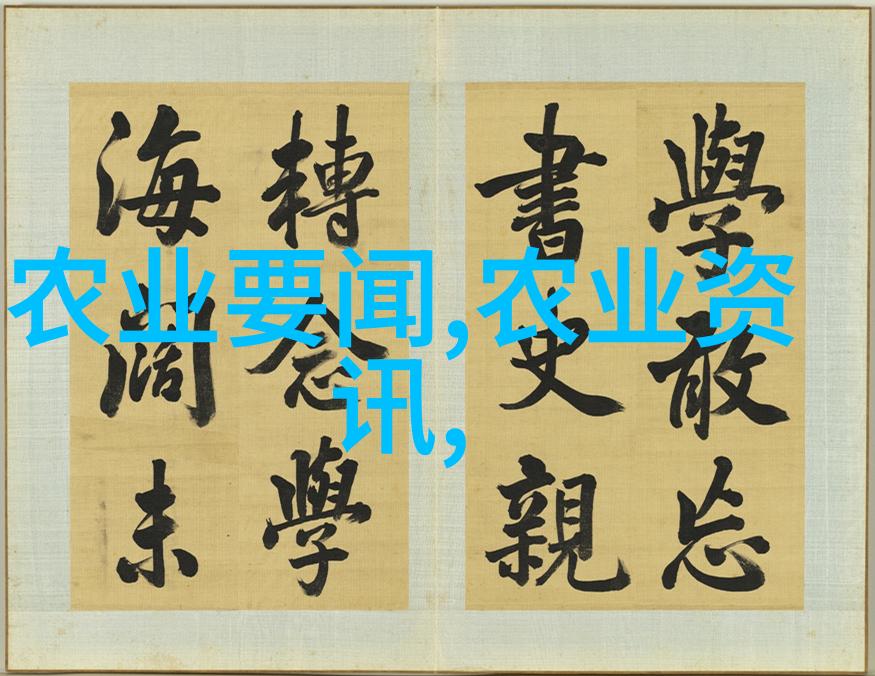 學敢忘
書史親
轉念學
海闊未
农业要闻,农业资
讯,